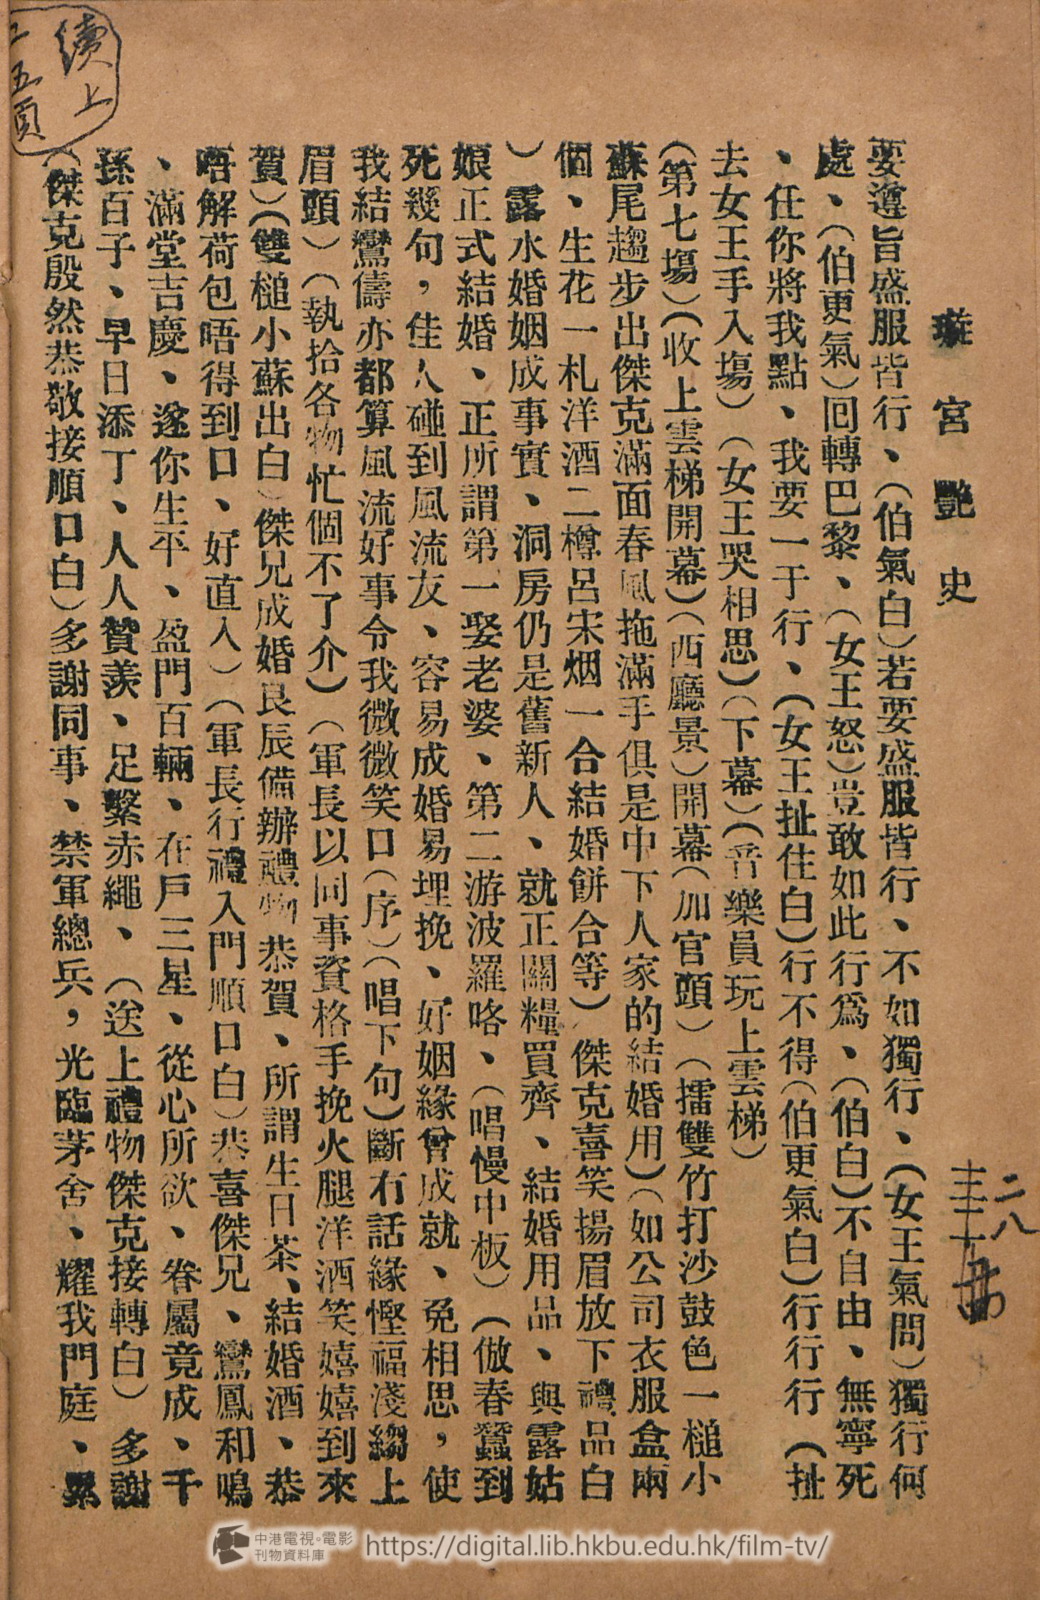 璇宮艷史
二八
要遵旨盛服皆行、(伯氣白)若要盛服皆行、不如獨行、(女王氣問)獨行何
處、(伯更氣)囘轉巴黎、(女王怒)豈敢如此行爲、(伯白)不自由、無寧死
、任你將我點、我要一于行、(女王扯住白)行不得(伯更氣白)行行行(扯
去女王手入塲)(女王哭相思)(下幕)(音樂員玩上雲梯)
(第七塲)(收上雲梯開幕)(西廳景)開幕(加官頭)(擂雙竹打沙鼓色一槌小
蘇尾趨步出傑克滿面春風拖滿手俱是中下人家的結婚用)(如公司衣服盒兩
個、生花一札洋酒二樽呂宋烟一合結婚餅合等)傑克喜笑揚眉放下禮品白
)露水婚姻成事實、洞房仍是舊新人、就正關糧買齊、結婚用品、與露姑
娘正式結婚、正所謂第一娶老婆、第二游波羅咯、(唱慢中板)(倣春蠶到
死幾句，佳人碰到風流友、容易成婚易埋挽、好姻緣曾成就、免相思，使
我結鸞儔亦都算風流好事令我微微笑口(序)(唱下句)斷冇話緣慳福淺縐上
眉頭)(執拾各物忙個不了介)(軍長以同事資格手挽火腿洋酒笑嬉嬉到來
賀)(雙槌小蘇出白)傑兄成婚良辰備辦禮物恭賀、所謂生日茶、結婚酒、恭
唔解荷包唔得到口、好直入)(軍長行禮入門順口白)恭喜傑兄、鸞鳳和鳴
、滿堂吉慶、遂你生平、盈門百輛、在戶三星、從心所欲、眷屬竟成、千
孫百子、早日添丁、人人贊羨、足繫赤繩、(送上禮物傑克接轉白)多謝
(傑克殷然恭敬接順口白)多謝同事、禁軍總兵，光臨茅舍、耀我門庭、累
續上
二五頁
中港電視·電影
刊物資料庫
https://digital.lib.hkbu.edu.hk/film-tv/